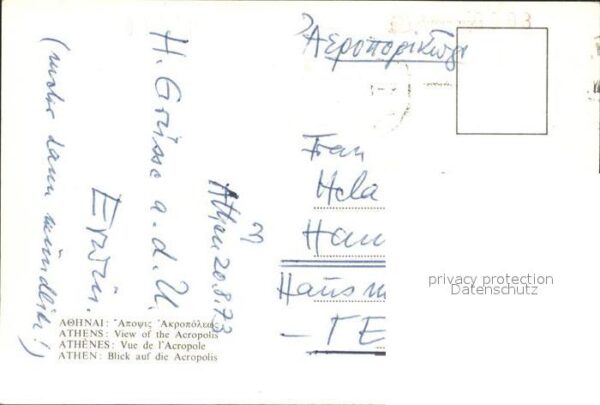 Athen 20.8.73
H. Grüsse a. d. U.
Erwin.
(mehr dann mündlich!)
ΑΘΗΝΑΙ: Ἄποψις Ἀκροπόλεως
ATHENS: View of the Acropolis
ATHÈNES: Vue de l'Acropole
ATHEN: Blick auf die Acropolis
Ἀεροπορικῶς
Frau
Hela
Haus
privacy protection
Datenschutz